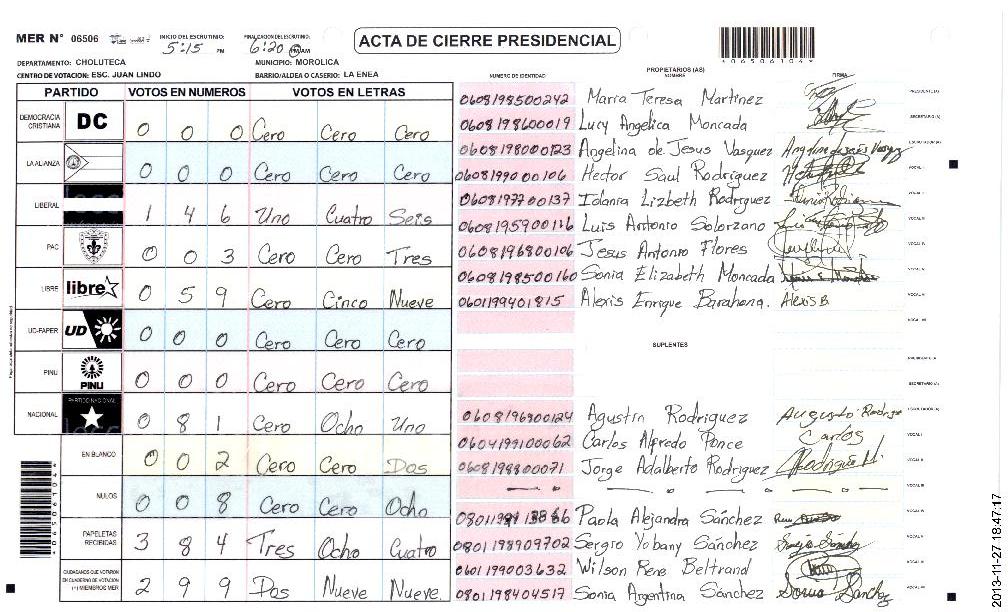 MER N° 06506
INICIO DEL ESCRUTINIO: 5:15 PM
FINALIZACION DEL ESCRUTINIO: 6:20 PM AM
ACTA DE CIERRE PRESIDENCIAL
4065061044
DEPARTAMENTO: CHOLUTECA
MUNICIPIO: MOROLICA
CENTRO DE VOTACION: ESC. JUAN LINDO
BARRIO/ALDEA O CASERIO: LA ENEA
PARTIDO VOTOS EN NUMEROS VOTOS EN LETRAS
DEMOCRACIA CRISTIANA DC 0 0 0 Cero Cero Cero
LA ALIANZA 0 0 0 Cero Cero Cero
LIBERAL 1 4 6 Uno Cuatro Seis
PAC 0 0 3 Cero Cero Tres
LIBRE libre 0 5 9 Cero Cinco Nueve
UD-FAPER UD 0 0 0 Cero Cero Cero
PINU PINU 0 0 0 Cero Cero Cero
NACIONAL PARTIDO NACIONAL 0 8 1 Cero Ocho Uno
EN BLANCO 0 0 2 Cero Cero Dos
NULOS 0 0 8 Cero Cero Ocho
PAPELETAS RECIBIDAS 3 8 4 Tres Ocho Cuatro
CIUDADANOS QUE VOTARON EN CUADERNO DE VOTACION (+) MIEMBROS MER 2 9 9 Dos Nueve Nueve
NUMERO DE IDENTIDAD
PROPIETARIOS (AS)
NOMBRE
FIRMA
0608198500242 Maria Teresa Martinez PRESIDENTE(A)
0608198600019 Lucy Angelica Moncada SECRETARIO(A)
0608198000123 Angelina de Jesus Vasquez ESCRUTADOR(A)
0608199000106 Hector Saul Rodriguez VOCAL I
0608197700137 Idania Lizbeth Rodriguez VOCAL II
0608195900116 Luis Antonio Solorzano VOCAL III
0608196800106 Jesus Antonio Flores VOCAL IV
0608198500160 Sonia Elizabeth Moncada
0601199401815 Alexis Enrique Barahona. Alexis B
SUPLENTES
SECRETARIO(A)
0608196300124 Agustin Rodriguez
0604199100062 Carlos Alfredo Ponce Carlos VOCAL I
0608198800071 Jorge Adalberto Rodriguez Rodriguez M.
Paola Alejandra Sánchez
0801198909702 Sergio Yobany Sánchez
0601199003632 Wilson Rene Beltrand
0801198404517 Sonia Argentina Sánchez Sonia Sanchez
4065061044
2013-11-27 18:47:17